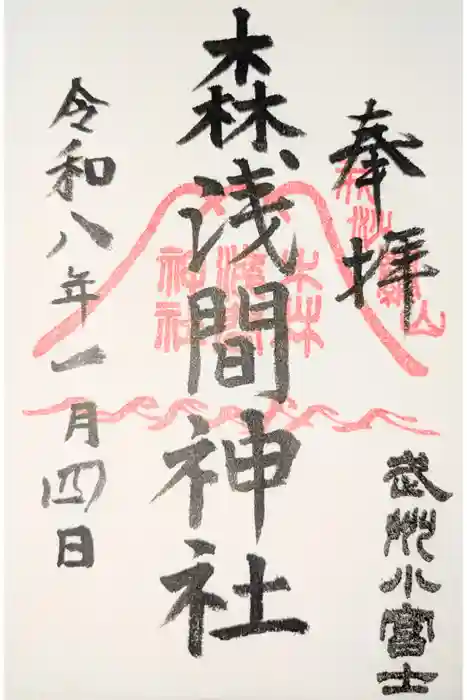 奉拝
武州小富士
森浅間神社
森浅間神社
令和八年一月四日